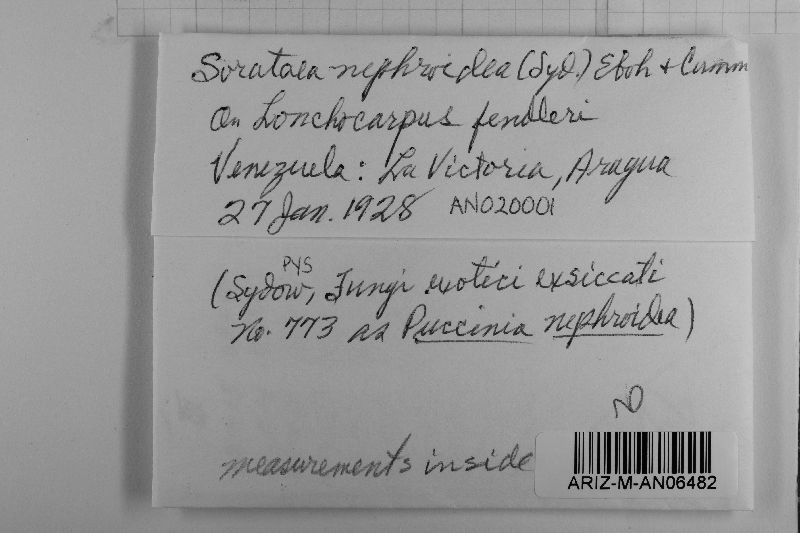 Sorataea nephroidea (Syd.) Eboh & Cumm
On Lonchocarpus fendleri
Venezuela: La Victoria, Aragua
27 Jan. 1928 AN020001
PYS
(Sydow, Fungi exotici exsiccati
No. 773 as Puccinia nephroidea)
measurements inside
ARIZ-M-AN06482